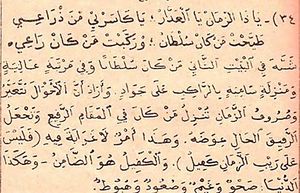 (٣٤) - يا ذا الزمان يا الغدار، يا كاسرني من ذراعي
طيحت من كان سلطان، وركبت من كان راعي
شبه في البيت الثاني من كان سلطانا وفي مرتبة عالية
ومنزلة سامية بالراكب على جواد. وأراد أن الأحوال تتغير
وصروف الزمان تنزل من كان في المقام الرفيع وتجعل
الرقيق الحال عوضه. وهذا أمر لا غرابة فيه (فليس
على ريب الزمان كفيل). والكفيل هو الضامن - وهكذا
الدنيا صحو وغيم، وصعود وهبوط.